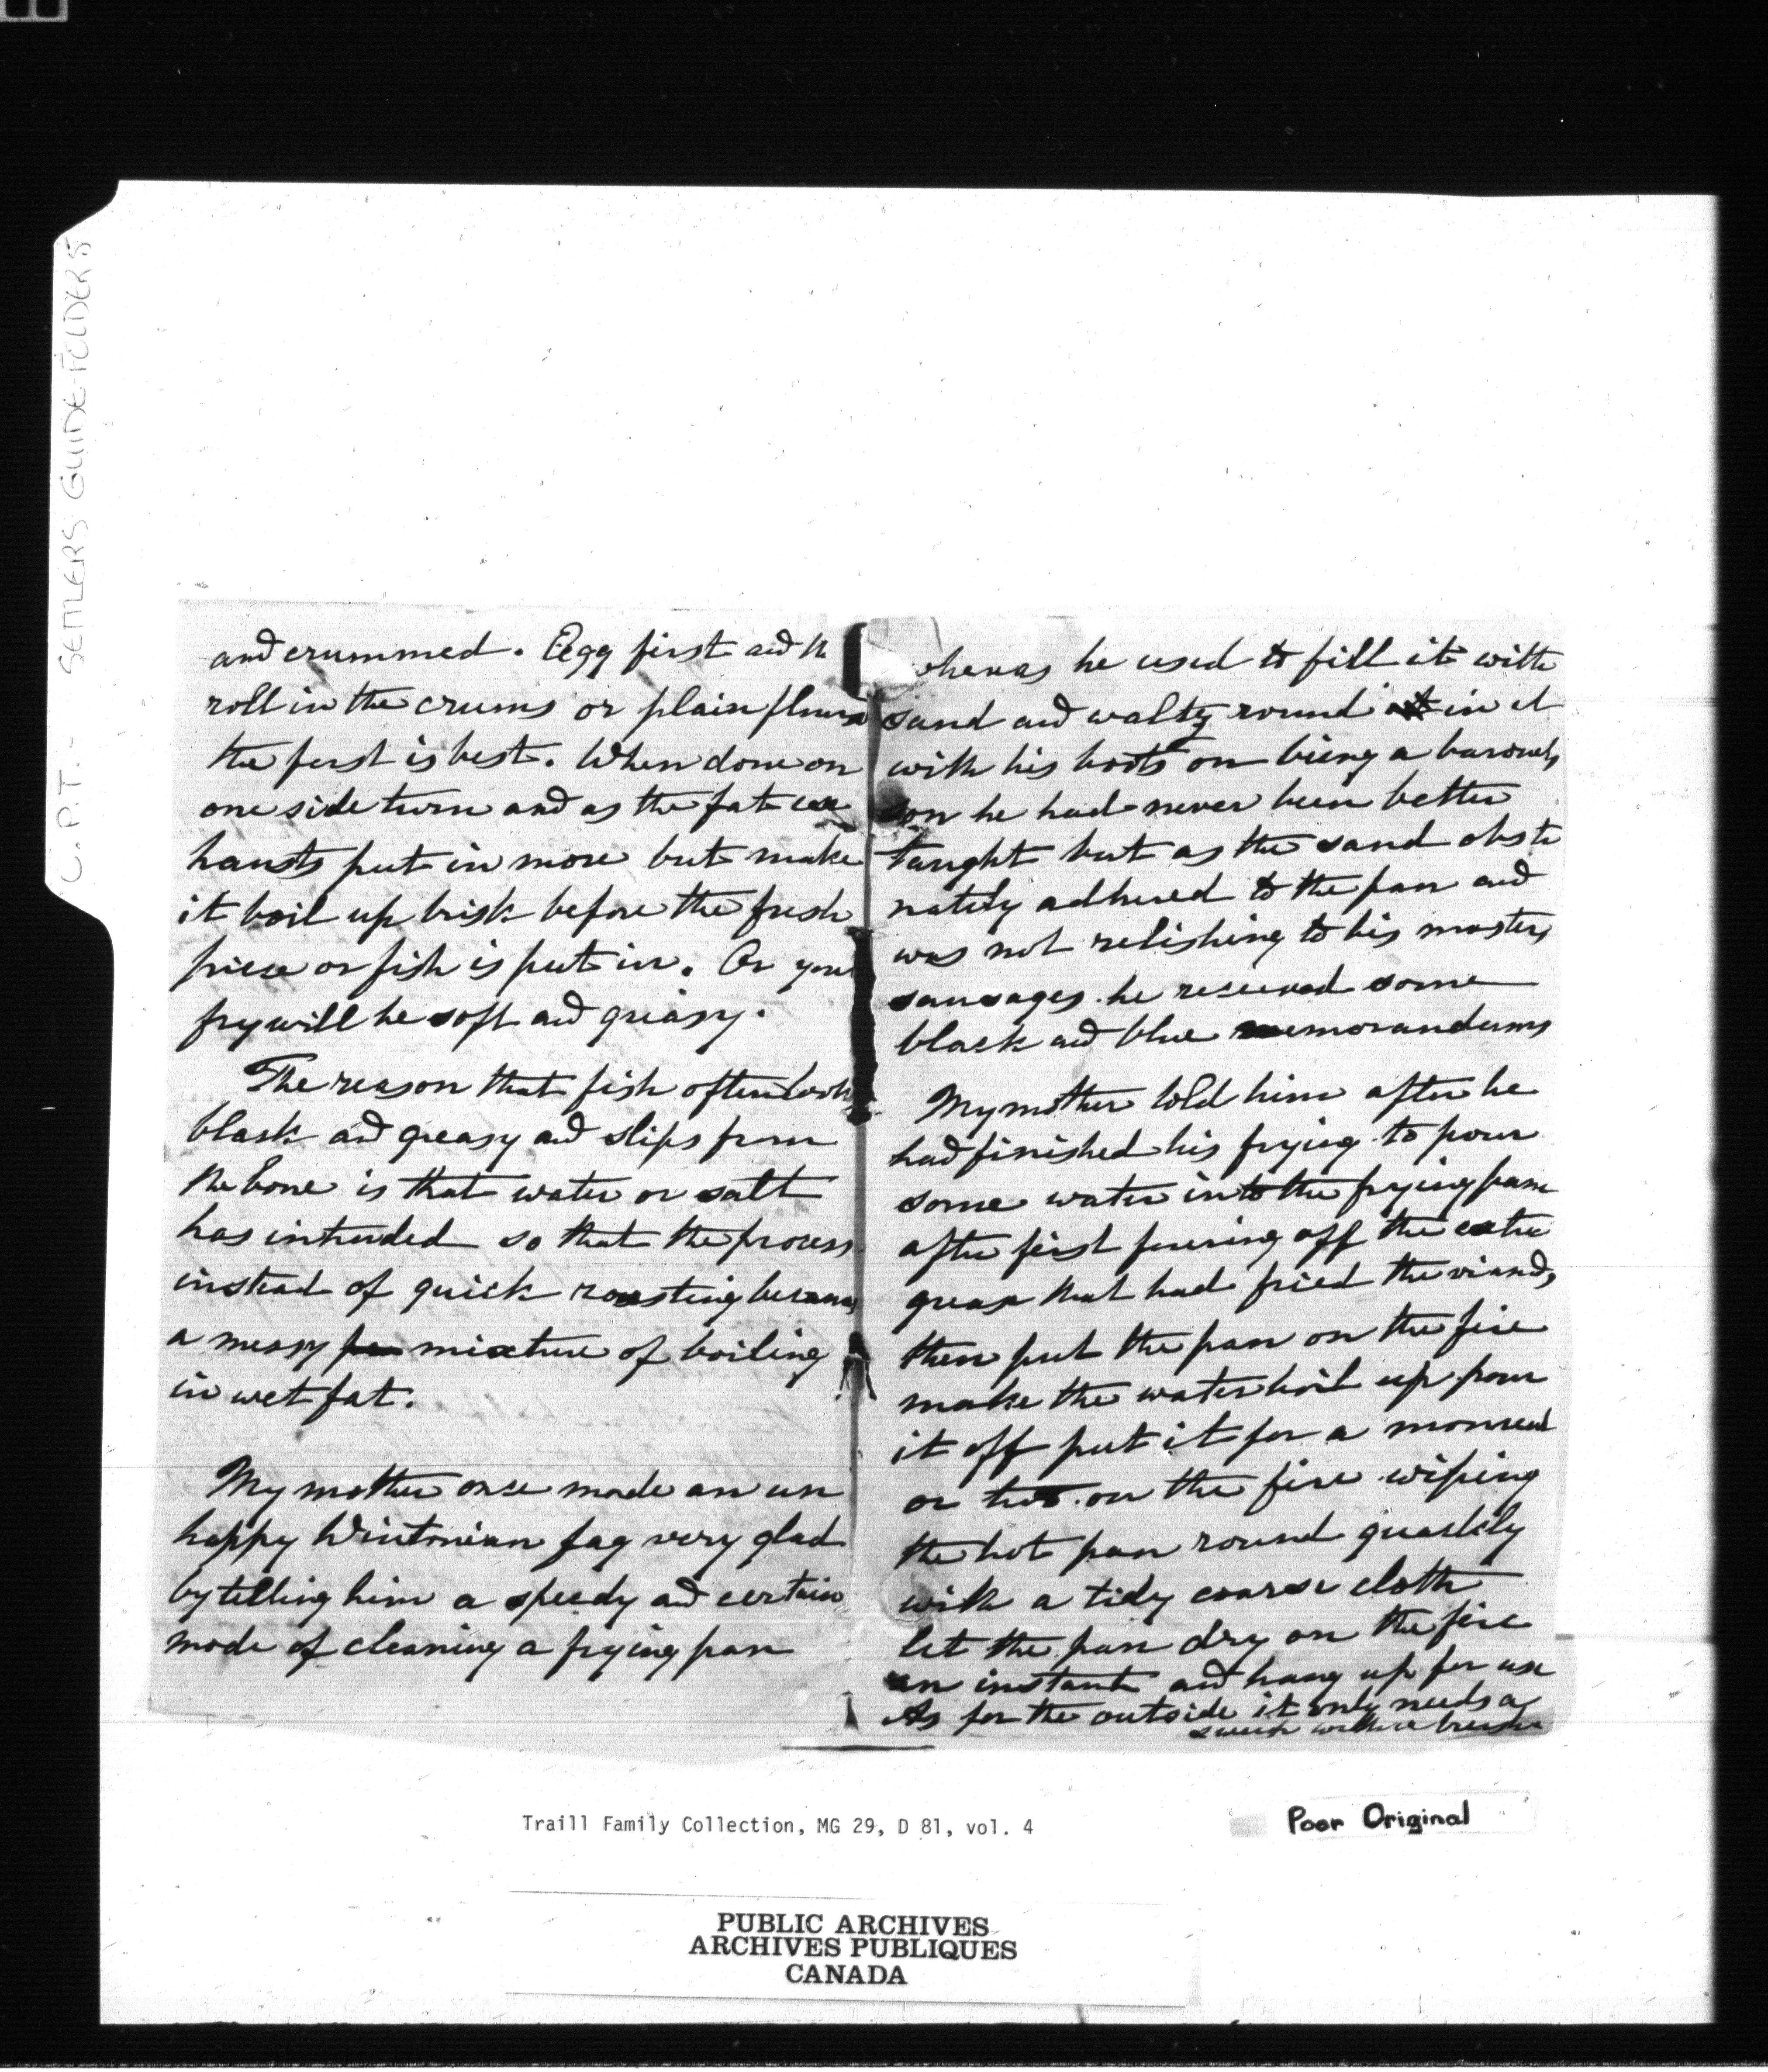 C.P.T. - SETTLERS GUIDE-FOLDERS
and crummed. Egg first and
roll in the crums or plain flour
the first is best. When done on
one side turn and as the fat ex
hausts put in more but make
it boil up brisk before the fresh
piece or fish is put in. Or your
fry will be soft and greasy.
The reason that fish often look
black and greasy and slips from
the bone is that water or salt
has intruded so that the process
instead of quick roasting becomes
a measy mixture of boiling
in wet fat.
My mother once made an un
happy Wintonian fag very glad
by telling him a speedy and certain
mode of cleaning a frying pan
whereas he used to fill it with
sand and waltz round in it
with his boots on being a baronets
son he had never been better
taught but as the sand obsti
nately adhered to the pan and
was not relishing to his masters
sausages he received some
black and blue memorandums
My mother told him after he
had finished his frying to pour
some water into the frying pan
after first pouring off the extra
grease that had fried the viands
then put the pan on the fire
make the water boil up pour
it off put it for a moment
or two on the fire wiping
the hot pan round quickly
with a tidy coarse cloth
let the pan dry on the fire
an instant and hang up for use
As for the outside it only needs a
sweep with a brush
Traill Family Collection, MG 29, D 81, vol. 4
Poor Original
PUBLIC ARCHIVES
ARCHIVES PUBLIQUES
CANADA